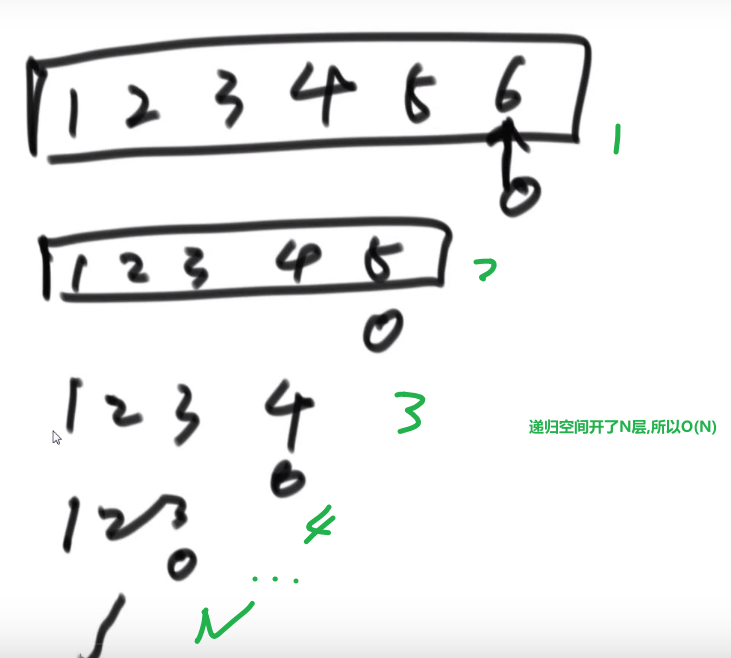 1 2 3 4 5 6
1
0
1 2 3 4 5
2
0
1 2 3 4
3
递归空间开了N层,所以O(N)
0
1 2 3
4
0
...
N